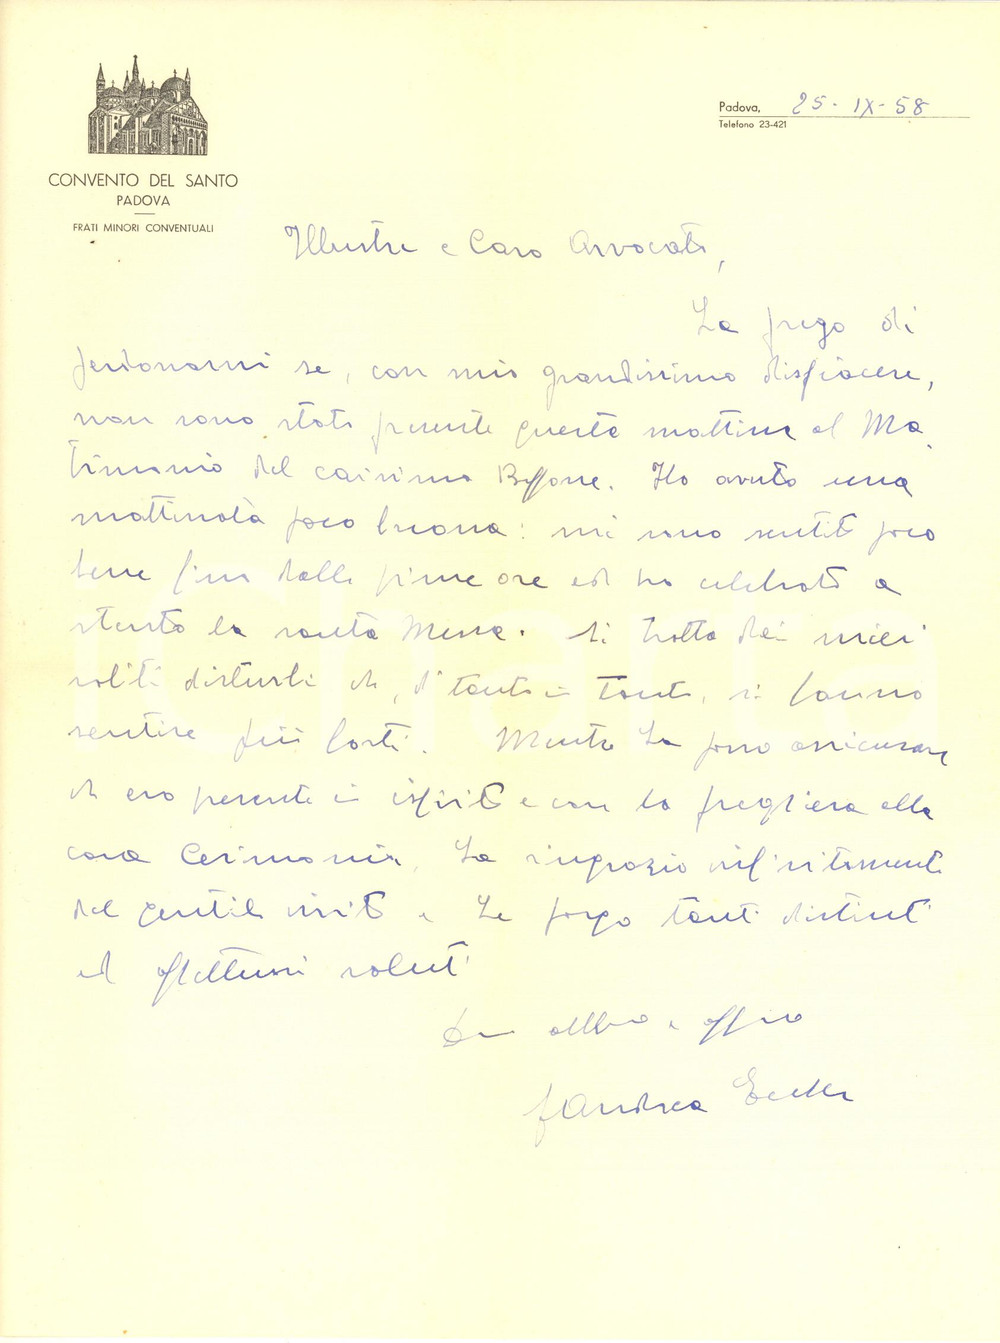 CONVENTO DEL SANTO
PADOVA
FRATI MINORI CONVENTUALI
Padova, 25-IX-58
Telefono 23-421
Illustre e Caro Avvocato,
La prego di
perdonarmi se, con mio grandissimo dispiacere,
non sono stato presente questa mattina al Ma
trimonio del carissimo Beppone. Ho avuto una
mattinata poco buona: mi sono sentito poco
bene fino dalle prime ore ed ho celebrato a
stento la santa Messa. Si tratta dei miei
soliti disturbi che, di tanto in tanto, si fanno
sentire più forti. Mentre La posso assicurare
che ero presente in ispirito e con la preghiera alla
cara Cerimonia, La ringrazio infinitamente
del gentile invito e Le porgo tanti distinti
ed affettuosi saluti
Suo obbl.mo e aff.mo
f Andrea
iCharta